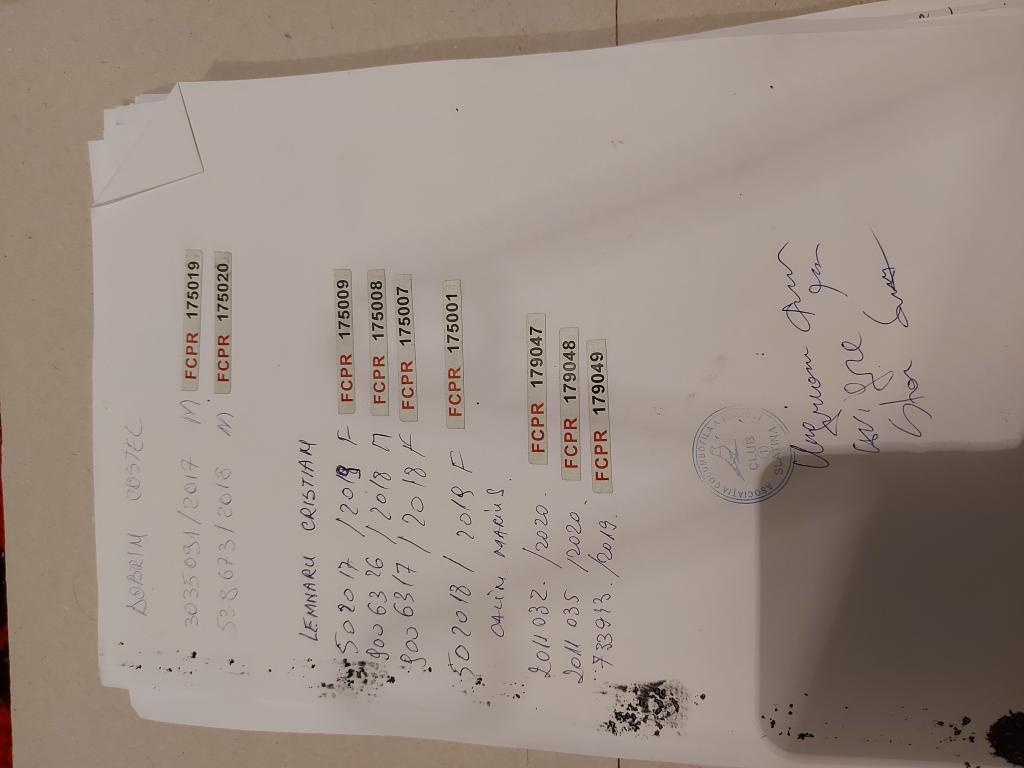 DOBRIM COSTEL
3035031/2017 M FCPR 175019
538673/2018 M. FCPR 175020
LEMNARU CRISTIAN
502017/2019 F FCPR 175009
9006326/2018 M FCPR 175008
9006317/2018 F FCPR 175007
502018/2019 F FCPR 175001
CALIN MARIUS
2011032./2020. FCPR 179047
2011035/2020 FCPR 179048
733913./2019. FCPR 179049
ASOCIAȚIA COLUMBOFILA
CLUB
SLATINA